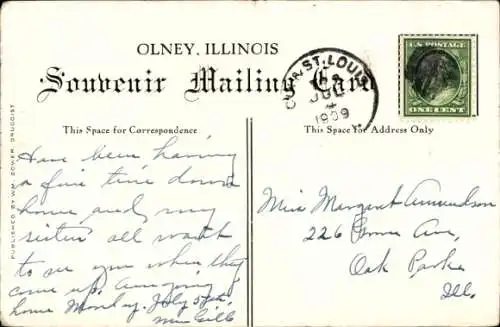 OLNEY, ILLINOIS
Souvenir Mailing Card
ST. LOUIS
JUL
4
1909
U.S. POSTAGE
ONE CENT
This Space for Correspondence
This Space for Address Only
PUBLISHED BY WM. BOWER, DRUGGIST
Have been having
a fine time down
home and my
sisters all want
to see you when they
come up. Am going
home Monday, July 5th.
Miss Margaret Amundson
226 Ave,
Oak Park
Ill.